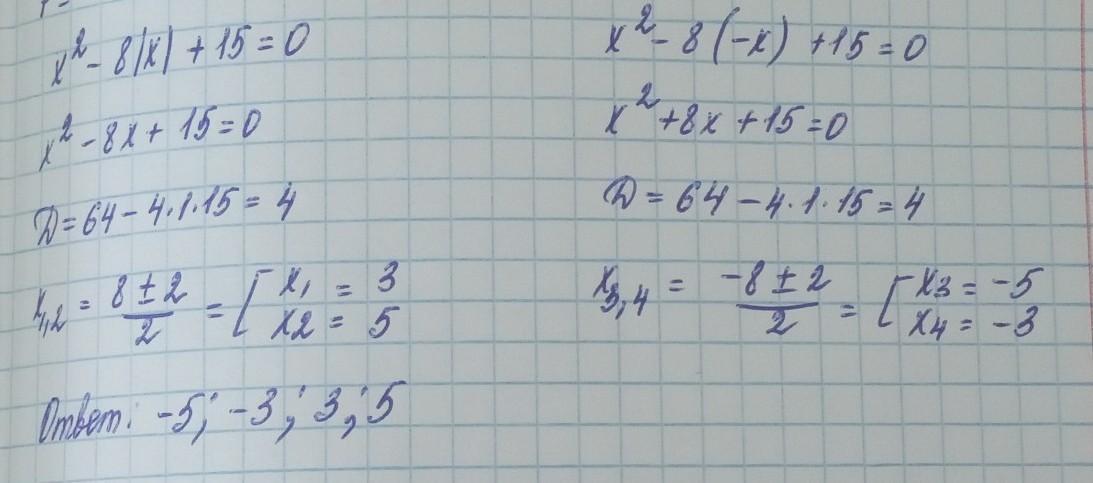 x² - 8|x| + 15 = 0
x² - 8x + 15 = 0
D = 64 - 4·1·15 = 4
x₁,₂ = (8 ± 2)/2 = [ x₁ = 3
x₂ = 5
x² - 8(-x) + 15 = 0
x² + 8x + 15 = 0
D = 64 - 4·1·15 = 4
x₃,₄ = (-8 ± 2)/2 = [ x₃ = -5
x₄ = -3
Ответ: -5; -3; 3; 5